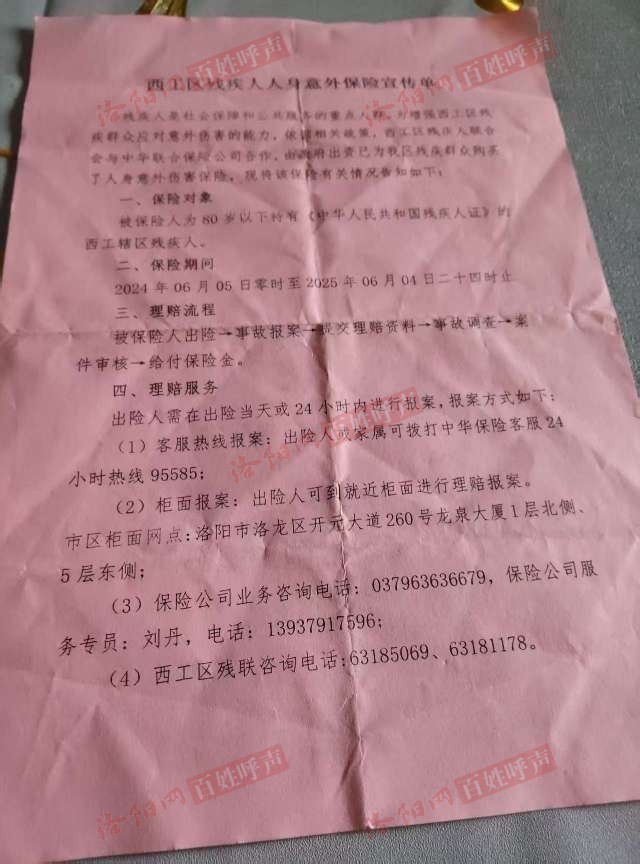 西工区残疾人人身意外保险宣传单
残疾人是社会保障和公共服务的重点人群，为增强西工区残
疾群众应对意外伤害的能力，依据相关政策，西工区残疾人联合
会与中华联合保险公司合作，由政府出资已为我区残疾群众购买
了人身意外伤害保险，现将该保险有关情况告知如下：
一、保险对象
被保险人为80岁以下持有《中华人民共和国残疾人证》的
西工辖区残疾人。
二、保险期间
2024年06月05日零时至2025年06月04日二十四时止
三、理赔流程
被保险人出险→事故报案→提交理赔资料→事故调查→案
件审核→给付保险金。
四、理赔服务
出险人需在出险当天或24小时内进行报案，报案方式如下：
（1）客服热线报案：出险人或家属可拨打中华保险客服24
小时热线95585；
（2）柜面报案：出险人可到就近柜面进行理赔报案。
市区柜面网点：洛阳市洛龙区开元大道260号龙泉大厦1层北侧、
5层东侧；
（3）保险公司业务咨询电话：037963636679，保险公司服
务专员：刘丹，电话：13937917596；
（4）西工区残联咨询电话：63185069、63181178。
洛阳网 百姓呼声
洛阳网 百姓呼声
洛阳网 百姓呼声
洛阳网 百姓呼声